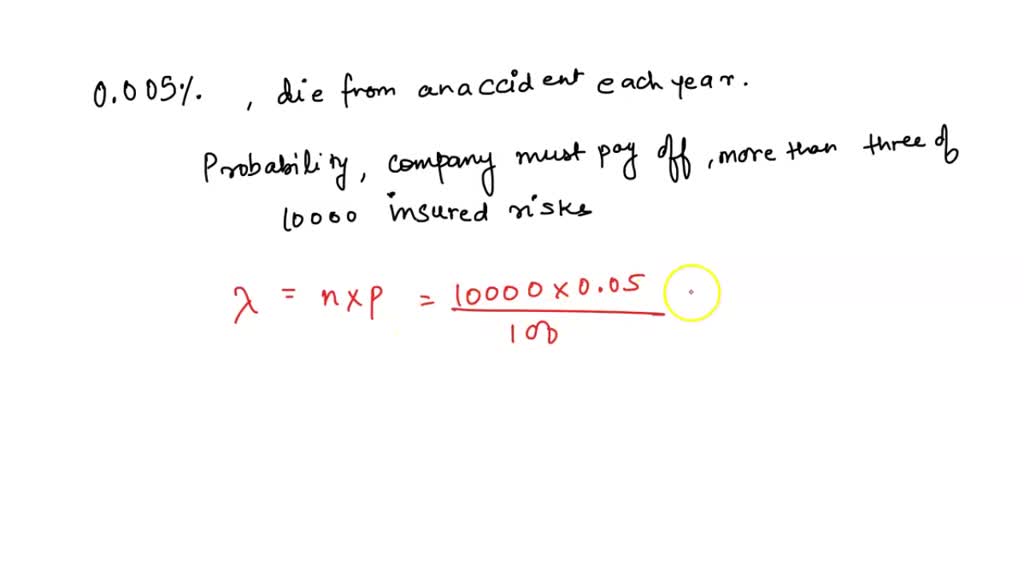 0.005%. , die from an accident each year.
Probability, company must pay off, more than three of
10000 insured risks
λ = n×p = 10000×0.05
100